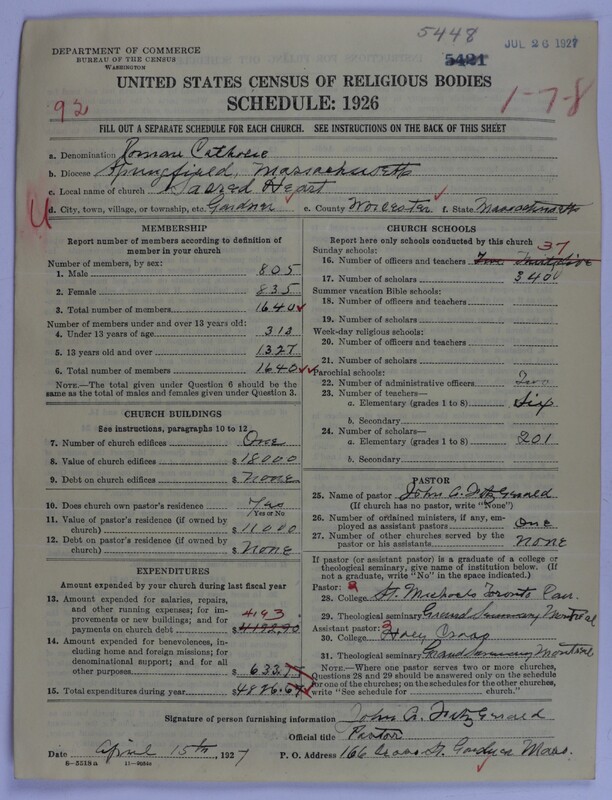 5448
DEPARTMENT OF COMMERCE
BUREAU OF THE CENSUS
WASHINGTON
5421
JUL 26 1927
UNITED STATES CENSUS OF RELIGIOUS BODIES
SCHEDULE: 1926
92
1-7-8
FILL OUT A SEPARATE SCHEDULE FOR EACH CHURCH. SEE INSTRUCTIONS ON THE BACK OF THIS SHEET
a. Denomination Roman Catholic
b. Diocese Springfield, Massachusetts
c. Local name of church Sacred Heart
d. City, town, village, or township, etc. Gardner e. County Worcester f. State Massachusetts
U
MEMBERSHIP
Report number of members according to definition of
member in your church
Number of members, by sex:
1. Male 805
2. Female 835
3. Total number of members 1640
Number of members under and over 13 years old:
4. Under 13 years of age 313
5. 13 years old and over 1327
6. Total number of members 1640
NOTE.—The total given under Question 6 should be the
same as the total of males and females given under Question 3.
CHURCH BUILDINGS
See instructions, paragraphs 10 to 12
7. Number of church edifices One
8. Value of church edifices $18000
9. Debt on church edifices $none
10. Does church own pastor's residence Yes
(Yes or No)
11. Value of pastor's residence (if owned by
church) $11000
12. Debt on pastor's residence (if owned by
church) $none
EXPENDITURES
Amount expended by your church during last fiscal year
13. Amount expended for salaries, repairs,
and other running expenses; for im-
provements or new buildings; and for
payments on church debt $
14. Amount expended for benevolences, in-
cluding home and foreign missions; for
denominational support; and for all
other purposes 633.75
15. Total expenditures during year $4826.67
CHURCH SCHOOLS
Report here only schools conducted by this church
Sunday schools: 37
16. Number of officers and teachers
17. Number of scholars 3400
Summer vacation Bible schools:
18. Number of officers and teachers
19. Number of scholars
Week-day religious schools:
20. Number of officers and teachers
21. Number of scholars
Parochial schools:
22. Number of administrative officers Two
23. Number of teachers—
a. Elementary (grades 1 to 8) Six
b. Secondary
24. Number of scholars—
a. Elementary (grades 1 to 8) 201
b. Secondary
PASTOR
25. Name of pastor John A. FitzGerald
(If church has no pastor, write "None")
26. Number of ordained ministers, if any, em-
ployed as assistant pastors One
27. Number of other churches served by the
pastor or his assistants none
If pastor (or assistant pastor) is a graduate of a college or
theological seminary, give name of institution below. (If
not a graduate, write "No" in the space indicated.)
Pastor:
28. College St. Michaels Toronto Can.
29. Theological seminary Grand Seminary Montreal
Assistant pastor:
30. College Holy Cross
31. Theological seminary Grand Seminary Montreal
NOTE.—Where one pastor serves two or more churches,
Questions 28 and 29 should be answered only on the schedule
for one of the churches; on the schedules for the other churches,
write "See schedule for church."
Signature of person furnishing information John A. FitzGerald
Official title Pastor
Date April 15th, 1927 P. O. Address 166 Cross St. Gardner Mass.
6-5218a